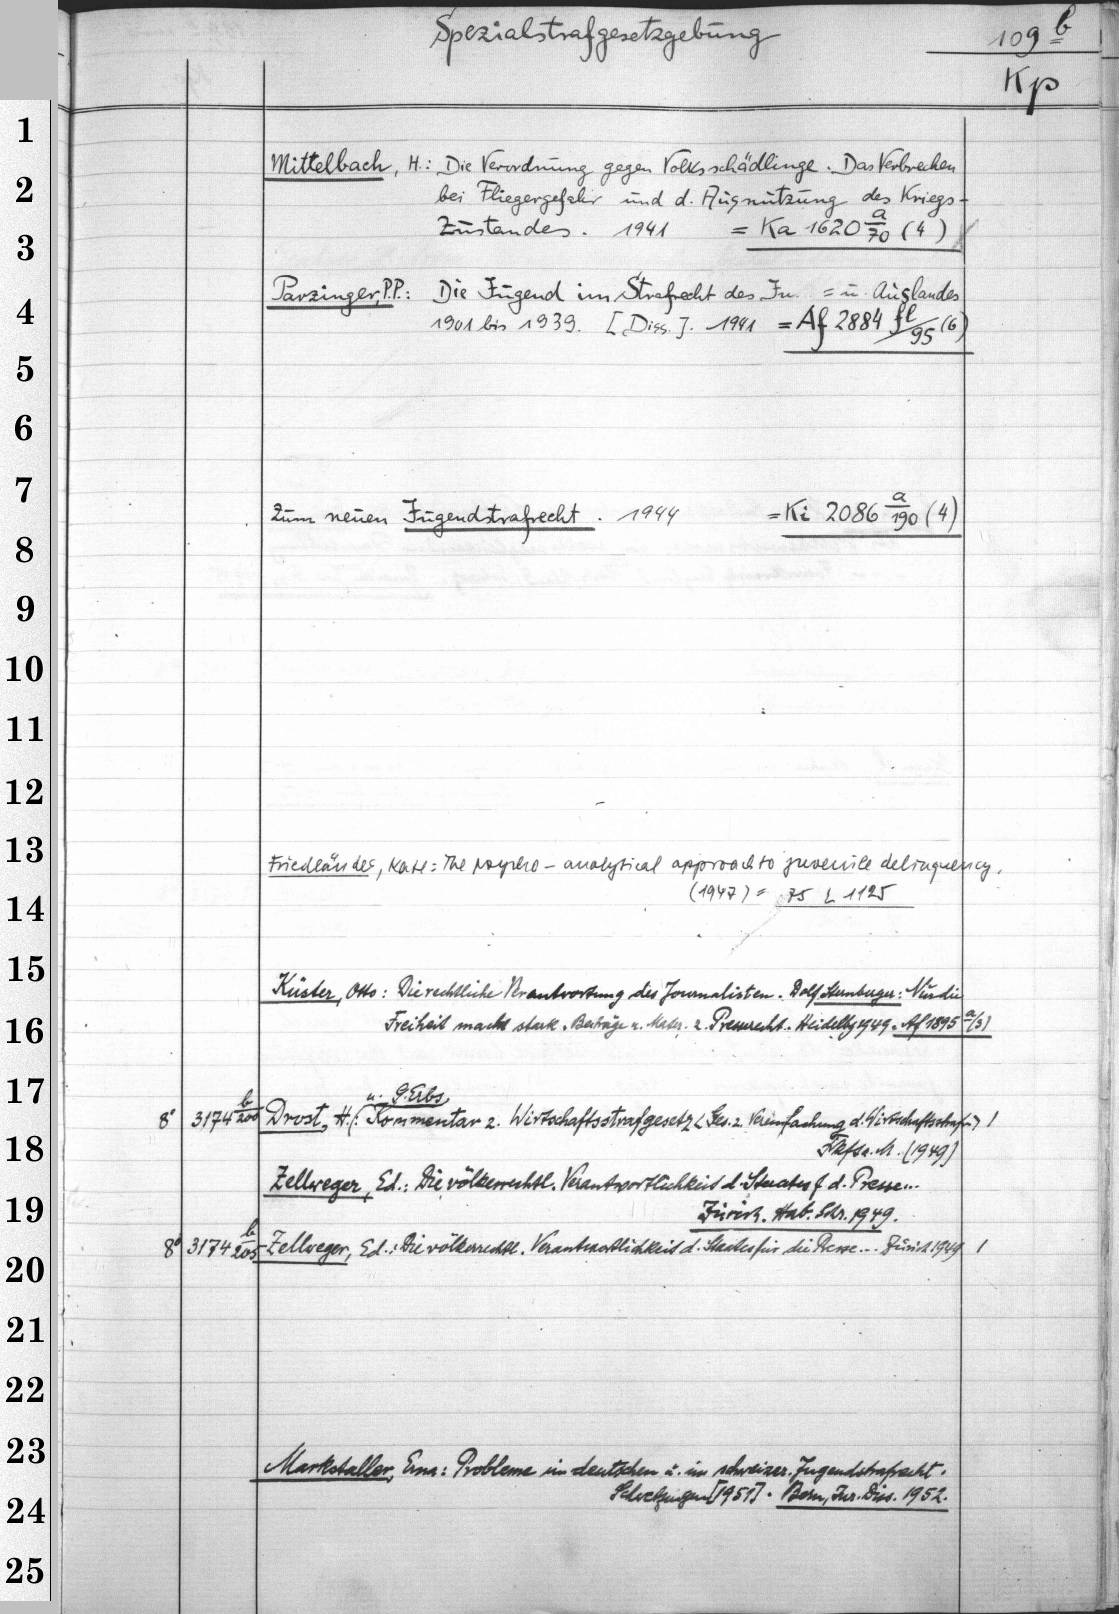 Spezialstrafgesetzgebung
109 b
Kp
1
Mittelbach, H.: Die Verordnung gegen Volksschädlinge. Das Verbrechen
2
bei Fliegergefahr und d. Ausnützung des Kriegs-
Zustandes. 1941 = Ka 1620 a/70 (4)
3
Parzinger, P.P.: Die Jugend im Strafrecht des In- = u. Auslandes
4
1901 bis 1939. [Diss.]. 1941 = Af 2884 fl/95 (6)
5
6
7
Zum neuen Jugendstrafrecht. 1944 = Ki 2086 a/190 (4)
8
9
10
11
12
13
Friedländer, Kate: The psycho-analytical approach to juvenile delinquency.
(1947) = 75 L 1125
14
15
Küster, Otto: Die rechtliche Verantwortung des Journalisten. Dolf Sternberger: Nur die
16
Freiheit macht stark. Beiträge z. Mater. z. Presserecht. Heidelbg 1949. Af 1895 a/(3)
17
u. G. Erbs
8° 3174 b/200 Drost, H.: Kommentar z. Wirtschaftsstrafgesetz < Ges. z. Vereinfachung d. Wirtschaftsstrafr. > 1
18
Fkft a. M. (1949)
Zellweger, Ed.: Die völkerrechtl. Verantwortlichkeit d. Staates f. d. Presse...
19
Zürich. Hab. Schr. 1949.
8° 3174 b/205 Zellweger, Ed.: Die völkerrechtl. Verantwortlichkeit d. Staates für die Presse... Zürich 1949 1
20
21
22
23
Markstaller, Erna: Probleme im deutschen u. im schweizer. Jugendstrafrecht.
24
Schwetzingen [1951]. Bern, Jur. Diss. 1952.
25